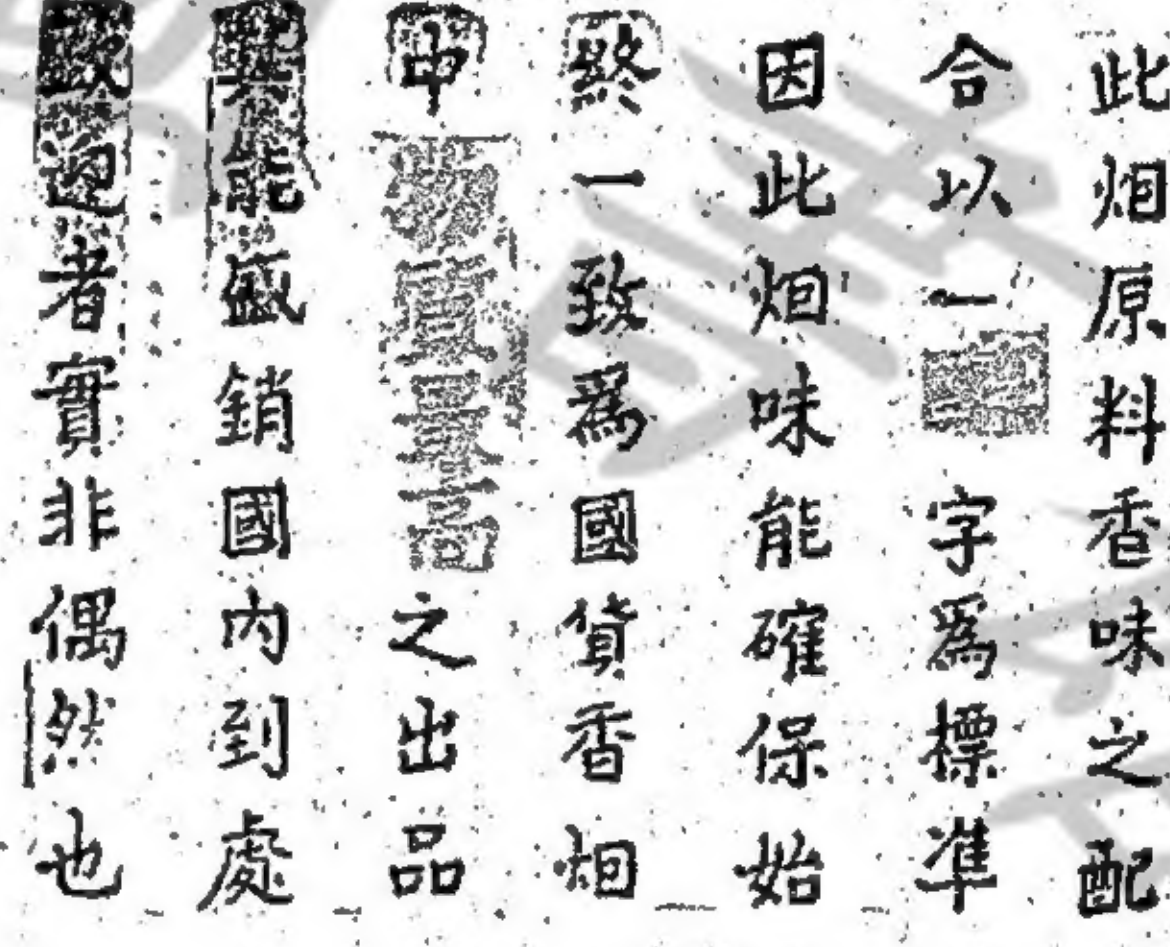 此烟原料香味之配
合以一字爲標凖
因此烟味能確保始
終一致爲國貨香烟
中質最高之出品
其能盛銷國內到處
歡迎者實非偶然也